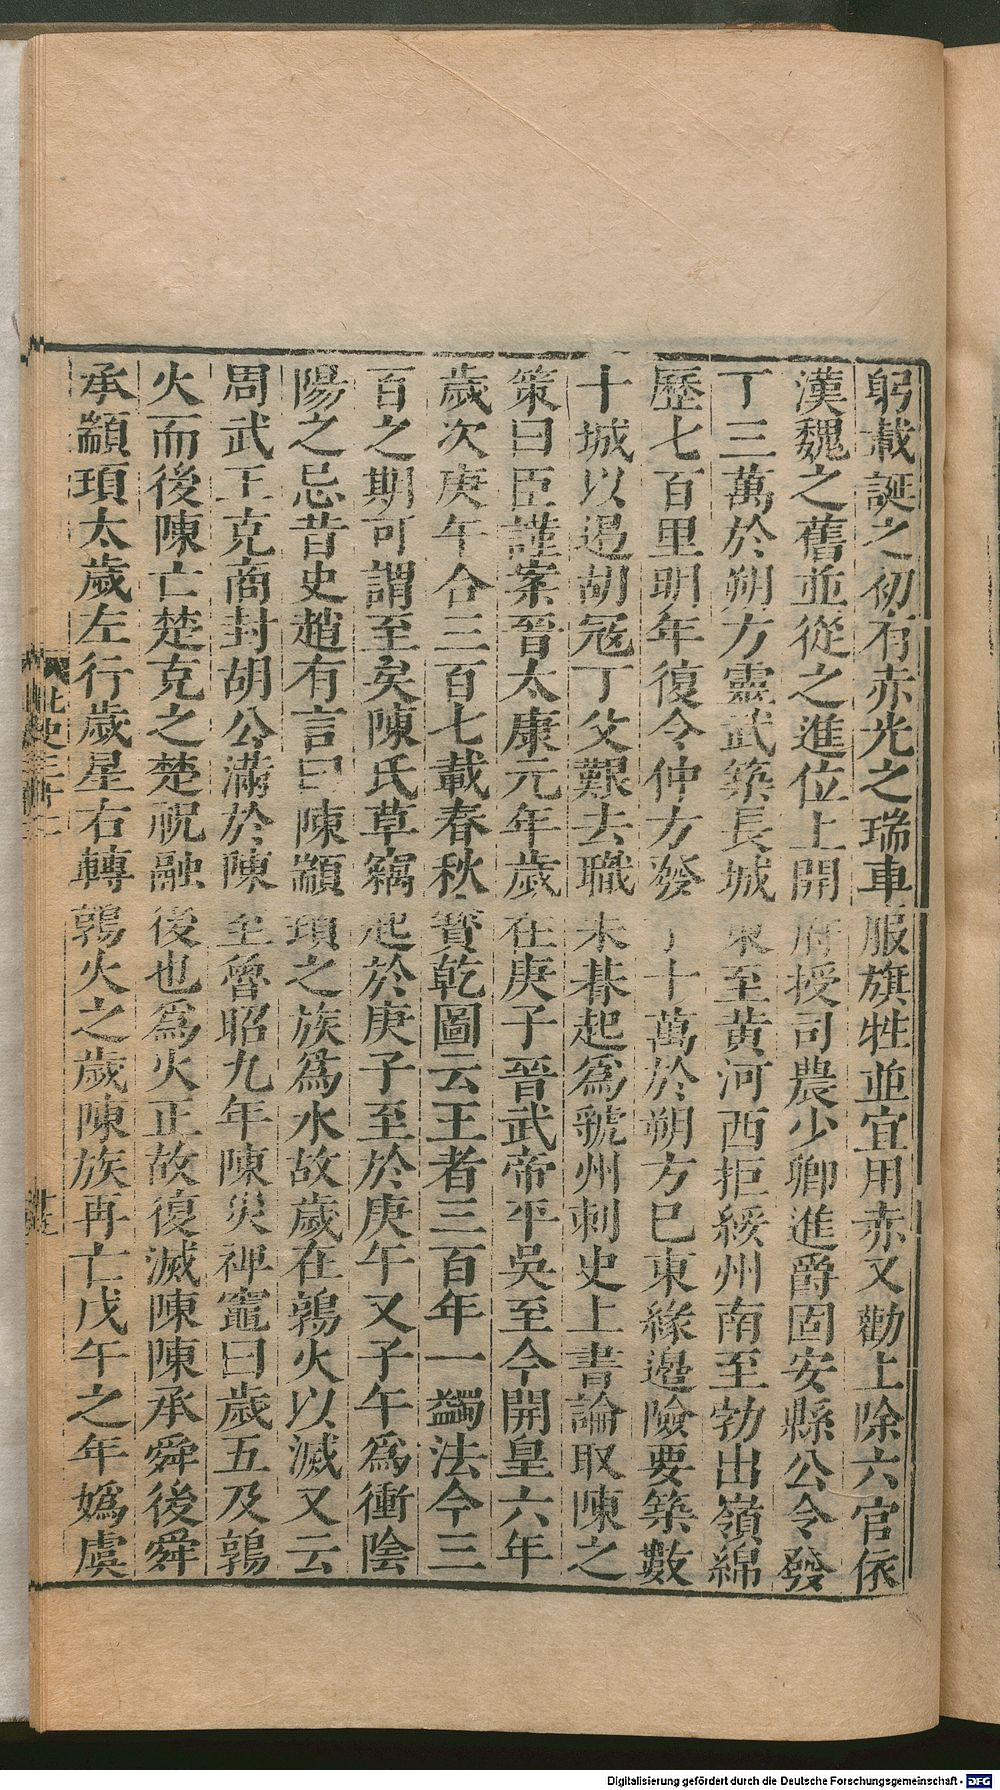 躬載誕之初有赤光之瑞車服旗牲並宜用赤又勸上除六官依
漢魏之舊並從之進位上開府授司農少卿進爵固安縣公令發
丁三萬於朔方靈武築長城東至黃河西拒綏州南至勃出嶺綿
歷七百里明年復令仲方發丁十萬於朔方已東緣邊險要築數
十城以遏胡寇丁父艱去職未朞起爲虢州刺史上書論取陳之
策曰臣謹案晉太康元年歲在庚子晉武帝平吳至今開皇六年
歲次庚午合三百七載春秋寶乾圖云王者三百年一蠲法今三
百之期可謂至矣陳氏草竊起於庚子至於庚午又子午爲衝陰
陽之忌昔史趙有言曰陳顓頊之族爲水故歲在鶉火以滅又云
周武王克商封胡公滿於陳至魯昭九年陳災禆竈曰歲五及鶉
火而後陳亡楚克之楚祝融後也爲火正故復滅陳陳承舜後舜
承顓頊太歲左行歲星右轉鶉火之歲陳族再亡戊午之年嬀虞
北史三十二
Digitalisierung gefördert durch die Deutsche Forschungsgemeinschaft - DFG